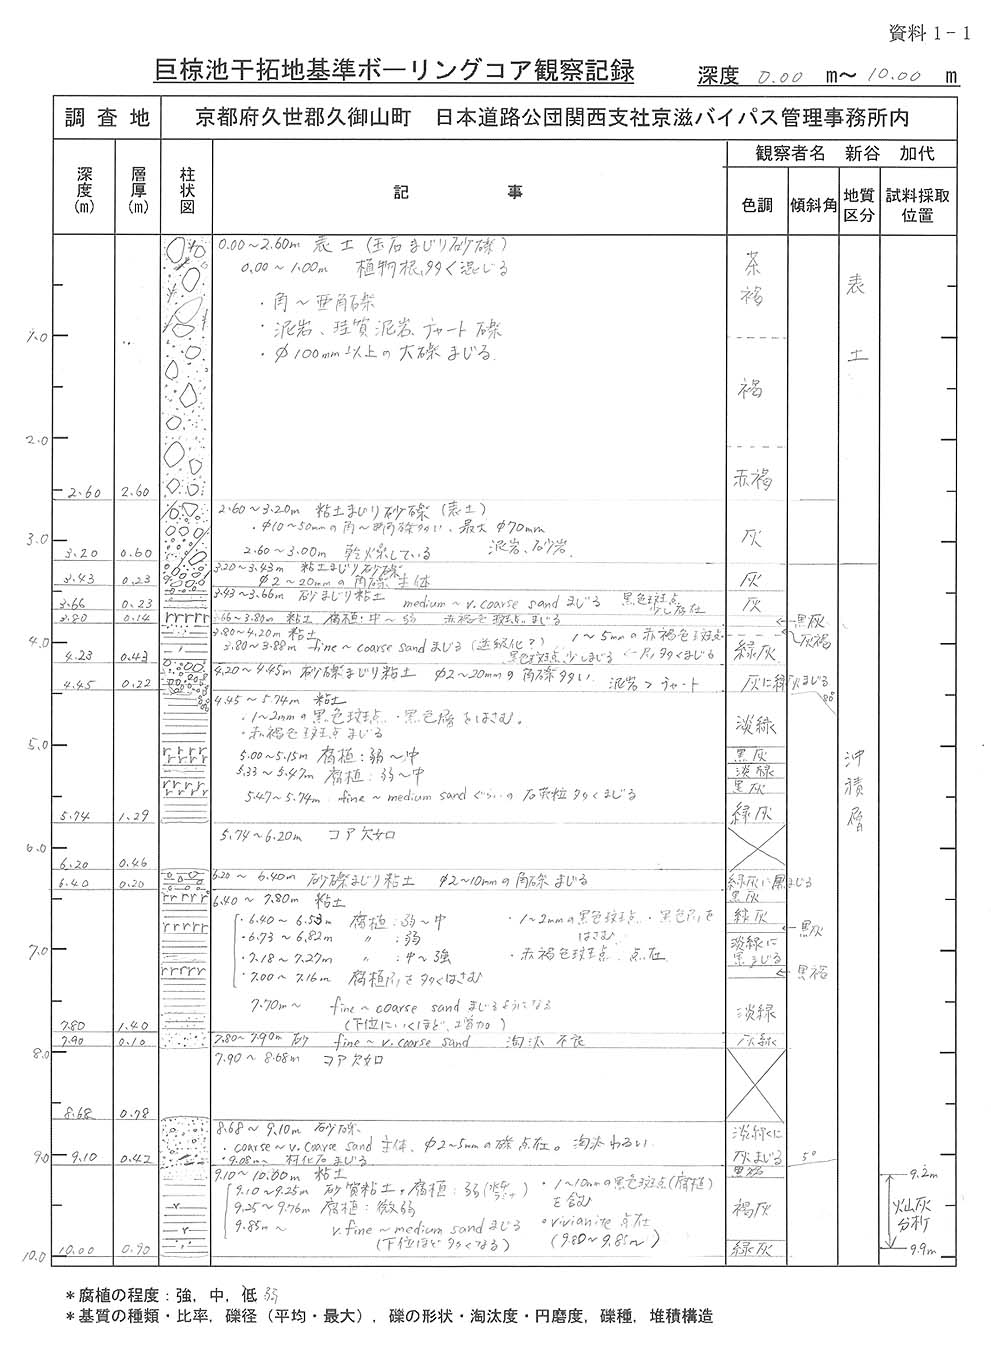 資料1-1
巨椋池干拓地基準ボーリングコア観察記録
深度 0.00 m～10.00 m
調査地 京都府久世郡久御山町 日本道路公団関西支社京滋バイパス管理事務所内
観察者名 新谷 加代
深度(m) 層厚(m) 柱状図 記事 色調 傾斜角 地質区分 試料採取位置
0.00～2.60m 表土(玉石まじり砂礫)
0.00～1.00m 植物根、多く混じる
茶褐
表土
・角～亜角礫
・泥岩、珪質泥岩、チャート礫
・φ100mm以上の大礫まじる
1.0
褐
2.0
赤褐
2.60 2.60
2.60～3.20m 粘土まじり砂礫(表土)
・φ10～50mmの角～亜角礫多い、最大φ70mm
泥岩、砂岩、
2.60～3.00m 乾燥している
灰
3.0
3.20 0.60
3.20～3.43m 粘土まじり砂礫
φ2～20mmの角礫主体
灰
3.43 0.23
3.43～3.66m 砂まじり粘土 medium～v.coarse sand まじる 黒色斑点少し存在
灰
3.66 0.23
3.66～3.80m 粘土 腐植:中～弱 赤褐色斑点まじる
黒灰
3.80 0.14
3.80～4.20m 粘土 1～5mmの赤褐色斑点
灰褐
3.80～3.88m fine～coarse sand まじる(逆級化?)
黒色斑点少しまじる
緑灰
4.0
4.23 0.43
4.20～4.45m 砂礫まじり粘土 φ2～20mmの角礫多い 泥岩>チャート
灰に緑灰まじる
4.45 0.22
4.45～5.74m 粘土
・1～2mmの黒色斑点・黒色層をはさむ。
・赤褐色斑点まじる
淡緑
5.0
5.00～5.15m 腐植:弱～中
黒灰
5.33～5.47m 腐植:弱～中
淡緑
黒灰
5.47～5.74m fine～medium sand ぐらいの石英粒多くまじる
緑灰
沖積層
5.74 1.29
5.74～6.20m コア欠如
6.0
6.20 0.46
6.20～6.40m 砂礫まじり粘土 φ2～10mmの角礫まじる
緑灰に黒まじる
6.40 0.20
6.40～7.80m 粘土
黒灰
・6.40～6.53m 腐植:弱～中 ・1～2mmの黒色斑点・黒色層をはさむ
緑灰
・6.73～6.82m 〃 :弱
黒灰
・7.18～7.27m 〃 :中～強 ・赤褐色斑点、点在
淡緑に黒まじる
7.0
・7.00～7.16m 腐植層を多くはさむ
黒褐
7.70m～ fine～coarse sand まじるようになる
(下位にいくほど、増加)
淡緑
7.80 1.40
7.80～7.90m 砂 fine～v.coarse sand 淘汰 不良
灰緑
7.90 0.10
7.90～8.68m コア欠如
8.0
8.68 0.78
8.68～9.10m 砂礫
・coarse～v.coarse sand 主体、φ2～5mmの礫点在。淘汰わるい
・9.08m～ 材化石まじる
淡緑に灰まじる
5°
9.0
9.10 0.42
9.10～10.00m 粘土
黒褐
9.2m
9.10～9.25m 砂質粘土、腐植:弱 ・1～10mmの黒色斑点(腐植)を含む
9.25～9.76m 腐植:微弱
9.85m～ v.fine～medium sand まじる
(下位ほど多くなる)
・vivianite 点在
(9.80～9.85m)
褐灰
火山灰分析
緑灰
9.9m
10.0
10.00 0.90
＊腐植の程度：強，中，低 弱
＊基質の種類・比率，礫径（平均・最大），礫の形状・淘汰度・円磨度，礫種，堆積構造